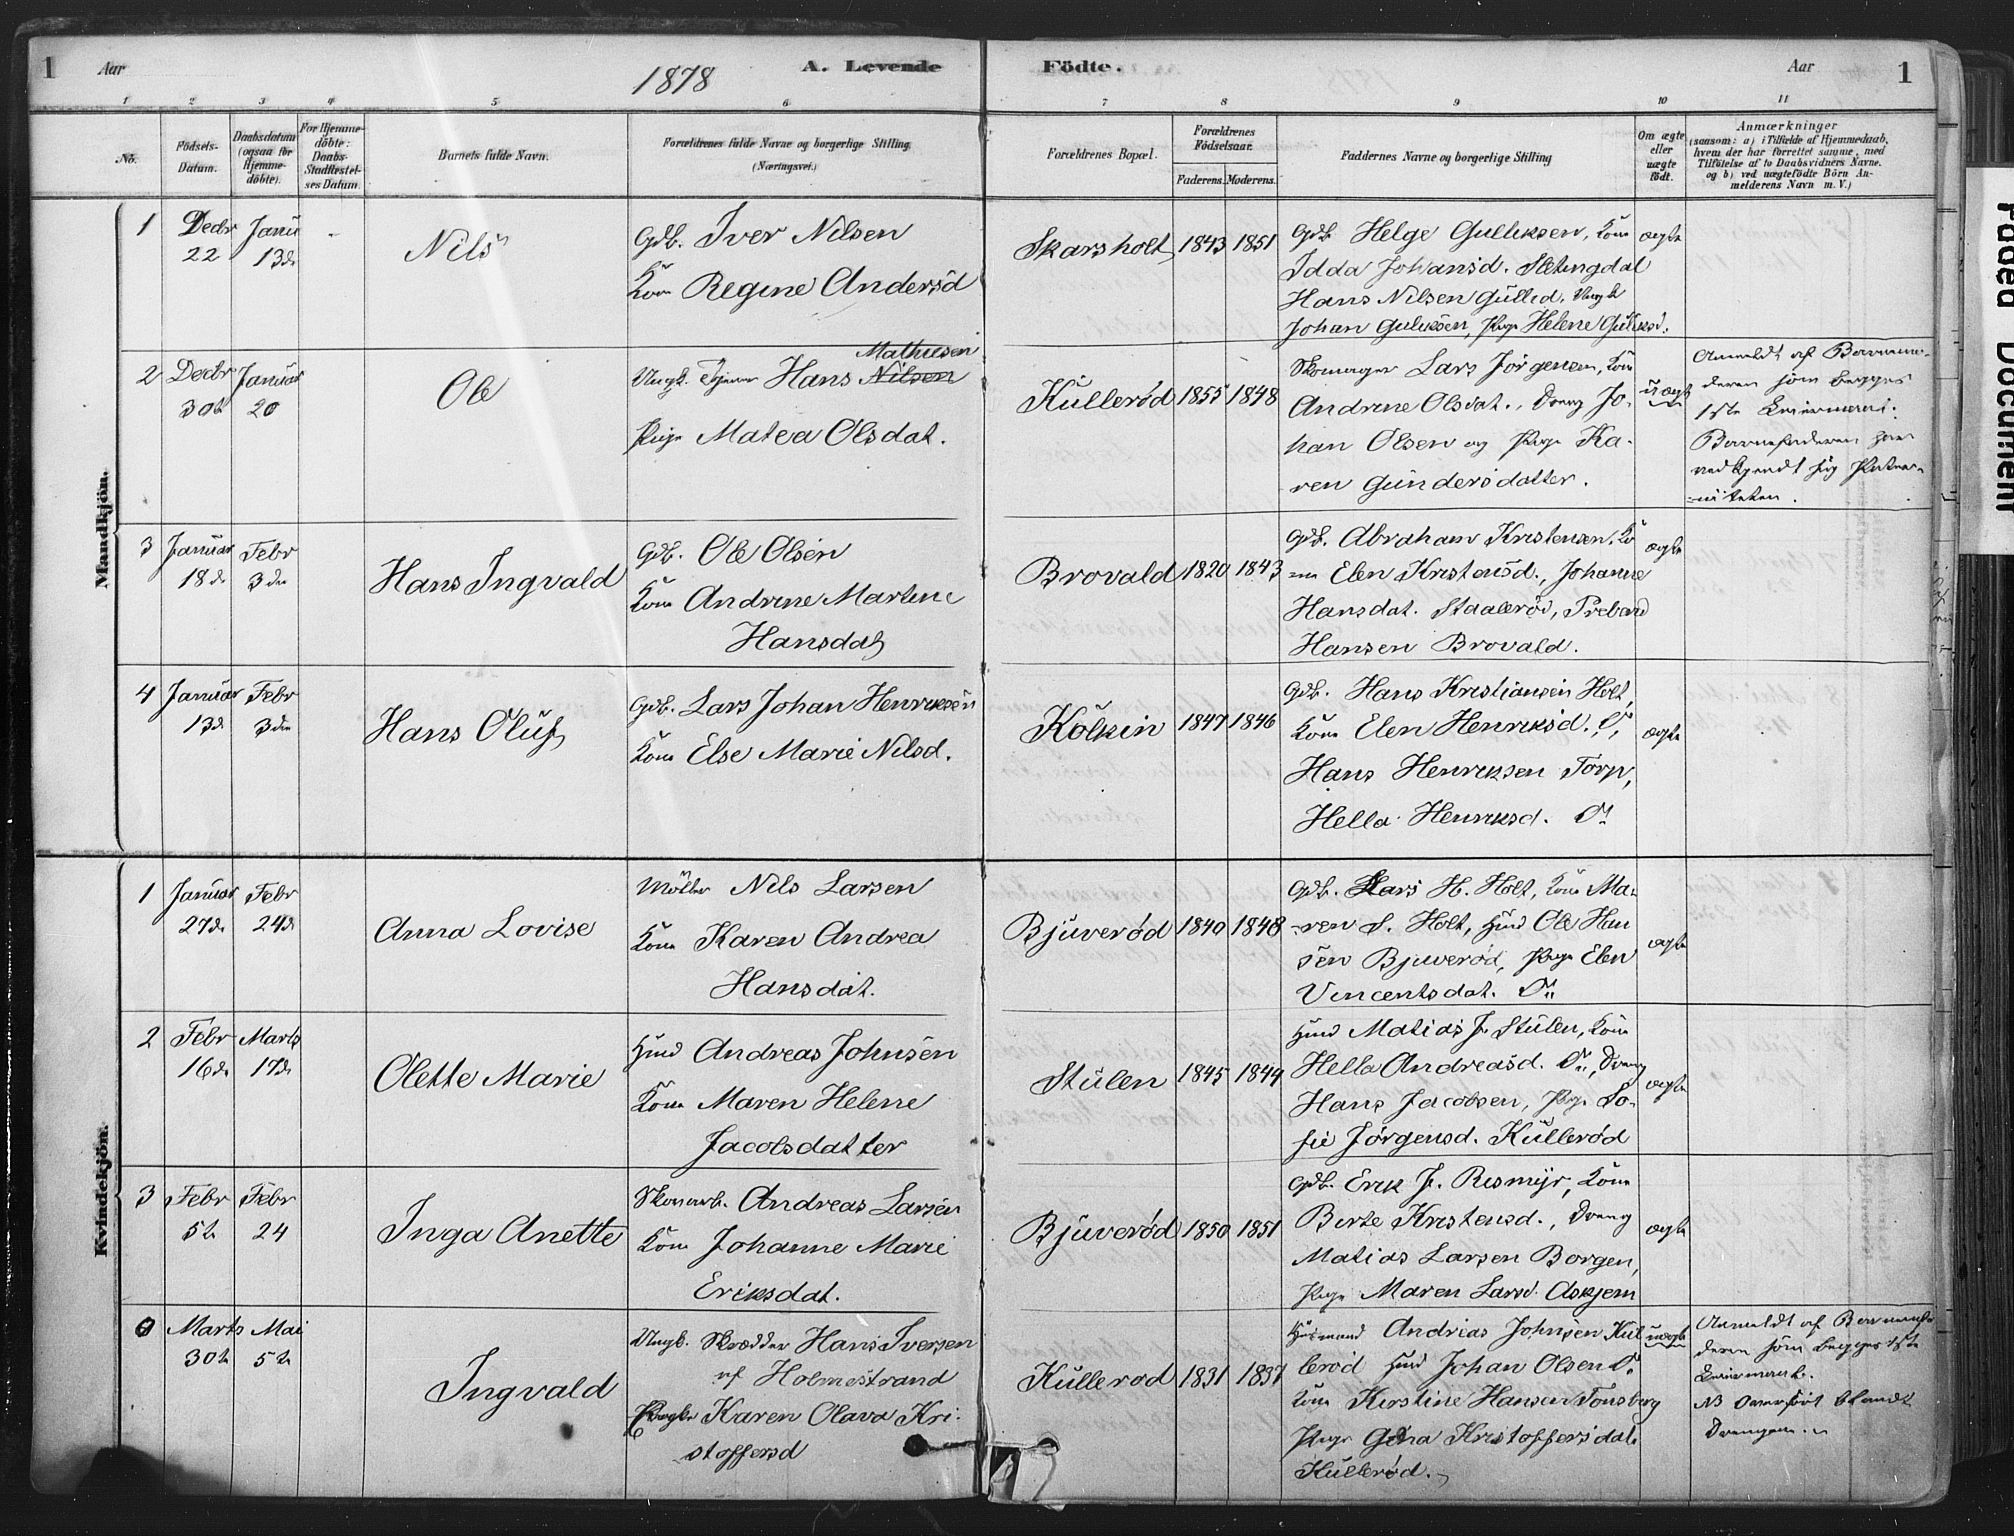 1 Aar 1878 A. Levende Födte. Aar 1
1 2 3 4 5 6 7 8 9 10 11
No. Födsels-Datum. Daabsdatum (ogsaa for Hjemme-döbte). For Hjemme-döbte: Daabs-Stadfæstelses Datum. Barnets fulde Navn. Forældrenes fulde Navne og borgerlige Stilling (Næringsvei.) Forældrenes Bopæl. Forældrenes Födselsaar. Faderens. Moderens. Faddernes Navne og borgerlige Stilling Om ægte eller uægte födt. Anmærkninger
(saasom: a) i Tilfælde af Hjemmedaab,
hvem der har forrettet samme, med
Tilföielse af to Daabsvidners Navne.
og b) ved uægtefödte Börn An-
melderens Navn m. V.)
Mandkjön.
1 Decbr 22 Janu 13de Nils
Gdb. Iver Nilsen
Kone Regine Andersd
Skarsholt 1843 1851
Gdb. Helge Gulliksen, Kone
Idda Johansd. Sletingdal
Hans Nilsen Gulled, Ungk
Johan Guliksen, Pige Helene Guliksd.
ægte
2 Decbr 30te Januar 20 Ole
Mathiesen
Ungk. Tjener Hans Nilsen
Pige Matea Olsdat.
Kullerød 1855 1848
Skomager Lars Jørgensen, Kone
Andrine Olsdat., Dreng Jo-
han Olsen og Pige Ka-
ren Gundersdatter.
uægte
Anmeldt af Barnemo-
deren som begges
1ste Leiermaal.
Barnefaderen har
vedkjendt sig Pater-
niteten.
3 Januar 18de Febr 3die Hans Ingvald
Gdb. Ole Olsen
Kone Andrine Martine
Hansdat
Brovald 1820 1843
Gdb. Abraham Kristensen, Ko
ne Elen Kristensd., Johanne
Hansdat. Staalerød,
Hansen Brovald.
ægte
4 Januar 13de Febr 3die Hans Oluf
Gdb. Lars Johan Henriksen
Kone Else Marie Nilsd.
Kolkin 1847 1846
Gdb. Hans Kristiansen Holt,
Kone Elen Henriksd. Do,
Hans Henriksen Torp,
Hella Henriksd. Do
ægte
Kvindekjön.
1 Januar 27de Febr 24de Anna Lovise
Møller Nils Larsen
Kone Karen Andrea
Hansdat.
Bjuverød 1840 1848
Gdb. Lars H. Holt, Kone Ma-
ren S. Holt, Husmd Ole Han
sen Bjuverød, Pige Elen
Vincentsdat. Do
ægte
2 Febr 16de Marts 17de Olette Marie
Husmd Andreas Johnsen
Kone Maren Helene
Jacobsdatter
Stulen 1845 1844
Husmd Matias J. Stulen, Kone
Hella Andreasd. Do, Dreng
Hans Jacobsen, Pige So-
fie Jørgensd. Kullerød
ægte
3 Febr 5te Febr 24 Inga Anette
Skomarb. Andreas Larsen
Kone Johanne Marie
Eriksdat.
Bjuverød 1850 1851
Gdb. Erik J. Resmyr, Kone
Berte Kristensd., Dreng
Matias Larsen Borgen,
Pige Maren Larsd. Askjem
ægte
0 Marts 30te Mai 5te Ingvald
Ungk. Skrædder Hans Iversen
af Holmestrand
Pige Karen Olava Kri-
stoffersd
Kullerod 1831 1837
Husmand Andreas Johnsen Kul
lerød Husmd Johan Olsen Do
Kone Kirstine Hansen Tønsberg
Pige Gina Kristoffersdat
Kullerød.
uægte
Anmeldt af Barnemo
deren som begges 1ste
Leiermaal.
NB Overført blandt
Drengene.
Faded Document